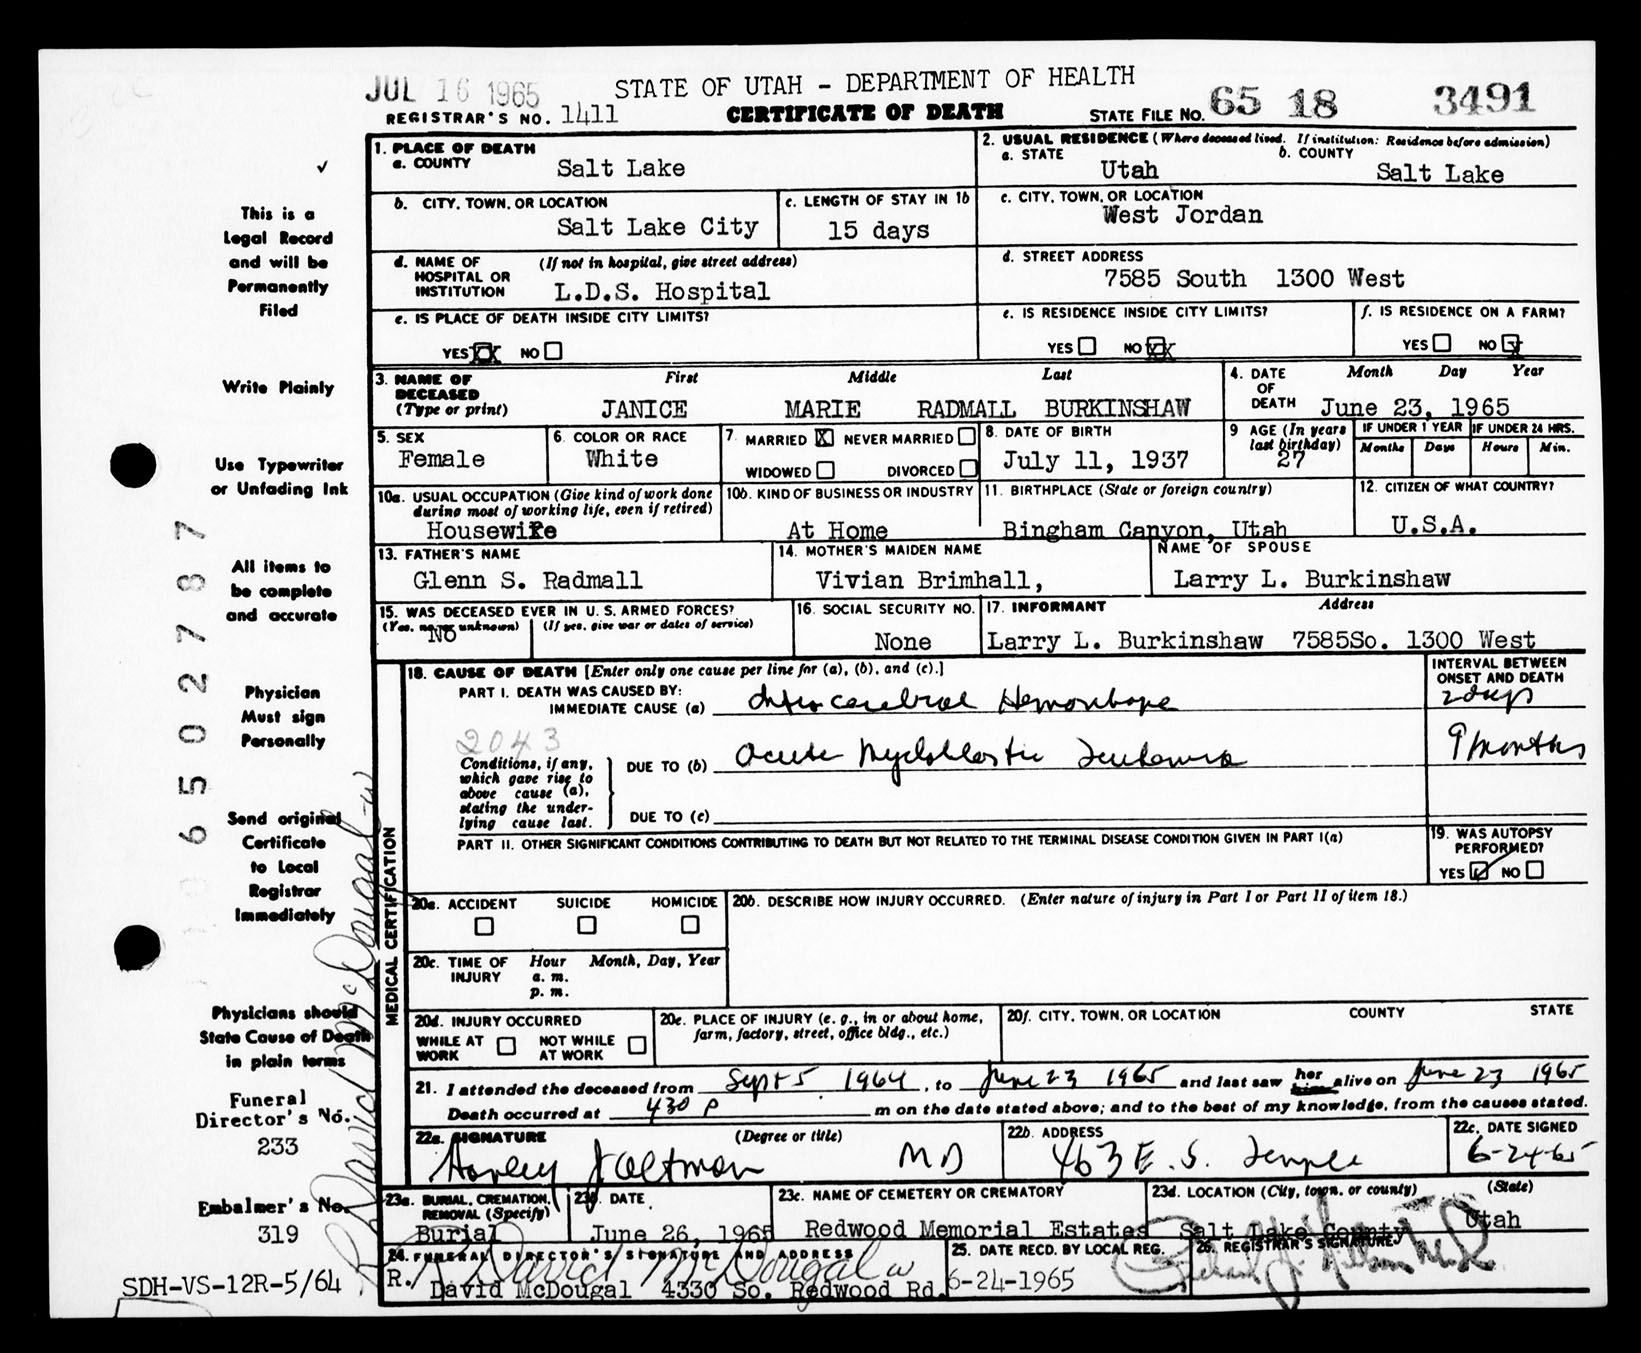 JUL 16 1965
STATE OF UTAH – DEPARTMENT OF HEALTH
REGISTRAR'S NO. 1411
CERTIFICATE OF DEATH
STATE FILE NO. 65 18 3491
1. PLACE OF DEATH
a. COUNTY
Salt Lake
2. USUAL RESIDENCE (Where deceased lived. If institution: Residence before admission)
a. STATE
Utah
b. COUNTY
Salt Lake
b. CITY, TOWN, OR LOCATION
Salt Lake City
c. LENGTH OF STAY IN 1b
15 days
c. CITY, TOWN, OR LOCATION
West Jordan
d. NAME OF HOSPITAL OR INSTITUTION
(If not in hospital, give street address)
L.D.S. Hospital
d. STREET ADDRESS
7585 South 1300 West
e. IS PLACE OF DEATH INSIDE CITY LIMITS?
YES XX NO
e. IS RESIDENCE INSIDE CITY LIMITS?
YES NO XX
f. IS RESIDENCE ON A FARM?
YES NO X
3. NAME OF DECEASED (Type or print)
First Middle Last
JANICE MARIE RADMALL BURKINSHAW
4. DATE OF DEATH
Month Day Year
June 23, 1965
5. SEX
Female
6. COLOR OR RACE
White
7. MARRIED X NEVER MARRIED
WIDOWED DIVORCED
8. DATE OF BIRTH
July 11, 1937
9 AGE (In years last birthday)
27
IF UNDER 1 YEAR
Months Days
IF UNDER 24 HRS.
Hours Min.
10a. USUAL OCCUPATION (Give kind of work done during most of working life, even if retired)
Housewife
10b. KIND OF BUSINESS OR INDUSTRY
At Home
11. BIRTHPLACE (State or foreign country)
Bingham Canyon, Utah
12. CITIZEN OF WHAT COUNTRY?
U.S.A.
13. FATHER'S NAME
Glenn S. Radmall
14. MOTHER'S MAIDEN NAME
Vivian Brimhall,
NAME OF SPOUSE
Larry L. Burkinshaw
15. WAS DECEASED EVER IN U.S. ARMED FORCES?
(Yes, no, or unknown) (If yes, give war or dates of service)
No
16. SOCIAL SECURITY NO.
None
17. INFORMANT Address
Larry L. Burkinshaw 7585So. 1300 West
MEDICAL CERTIFICATION
18. CAUSE OF DEATH [Enter only one cause per line for (a), (b), and (c).]
INTERVAL BETWEEN ONSET AND DEATH
PART I. DEATH WAS CAUSED BY:
IMMEDIATE CAUSE (a) Intracerebral Hemorrhage
2 days
2043
Conditions, if any, which gave rise to above cause (a), stating the underlying cause last.
DUE TO (b) Acute Myeloblastic Leukemia
9 months
DUE TO (c)
PART II. OTHER SIGNIFICANT CONDITIONS CONTRIBUTING TO DEATH BUT NOT RELATED TO THE TERMINAL DISEASE CONDITION GIVEN IN PART I(a)
19. WAS AUTOPSY PERFORMED?
YES ✓ NO
20a. ACCIDENT SUICIDE HOMICIDE
20b. DESCRIBE HOW INJURY OCCURRED. (Enter nature of injury in Part I or Part II of item 18.)
20c. TIME OF INJURY Hour a. m. p. m. Month, Day, Year
20d. INJURY OCCURRED
WHILE AT WORK NOT WHILE AT WORK
20e. PLACE OF INJURY (e. g., in or about home, farm, factory, street, office bldg., etc.)
20f. CITY, TOWN, OR LOCATION COUNTY STATE
21. I attended the deceased from Sept 5 1964, to June 23 1965 and last saw her him alive on June 23 1965
Death occurred at 430 p m on the date stated above; and to the best of my knowledge, from the causes stated.
22a. SIGNATURE (Degree or title)
MD
22b. ADDRESS
463 E. S. Temple
22c. DATE SIGNED
6-24-65
23a. BURIAL, CREMATION, REMOVAL (Specify)
Burial
23b. DATE
June 26, 1965
23c. NAME OF CEMETERY OR CREMATORY
Redwood Memorial Estates
23d. LOCATION (City, town, or county) (State)
Salt Lake County Utah
24. FUNERAL DIRECTOR'S SIGNATURE AND ADDRESS
R. David McDougal
David McDougal 4330 So. Redwood Rd.
25. DATE RECD. BY LOCAL REG.
6-24-1965
26. REGISTRAR'S SIGNATURE
This is a
Legal Record
and will be
Permanently
Filed
Write Plainly
Use Typewriter
or Unfading Ink
All items to
be complete
and accurate
Physician
Must sign
Personally
Send original
Certificate
to Local
Registrar
Immediately
Physicians should
State Cause of Death
in plain terms
Funeral
Director's No.
233
Embalmer's No.
319
SDH-VS-12R-5/64
6 5 0 2 7 8 7
R. David McDougal